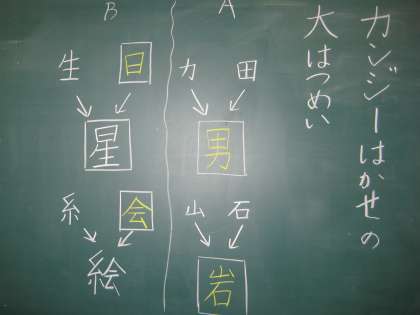 カンジーはかせの
大はつめい
A
田 カ
男
石 山
岩
B
日 生
星
会 糸
絵